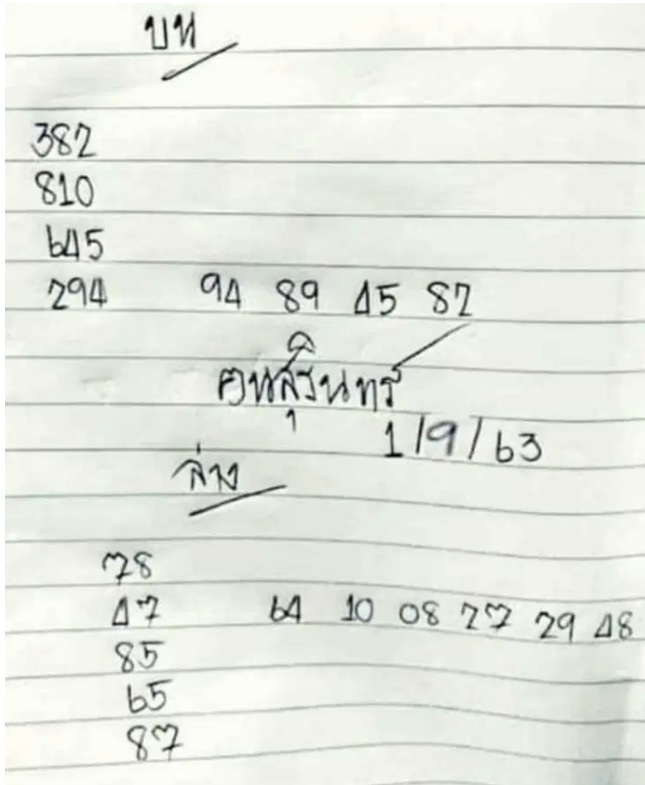 บน
382
810
645
294 94 89 45 82
คนสุรินทร์
1/9/63
ล่าง
78
47 64 10 08 27 29 48
85
65
87